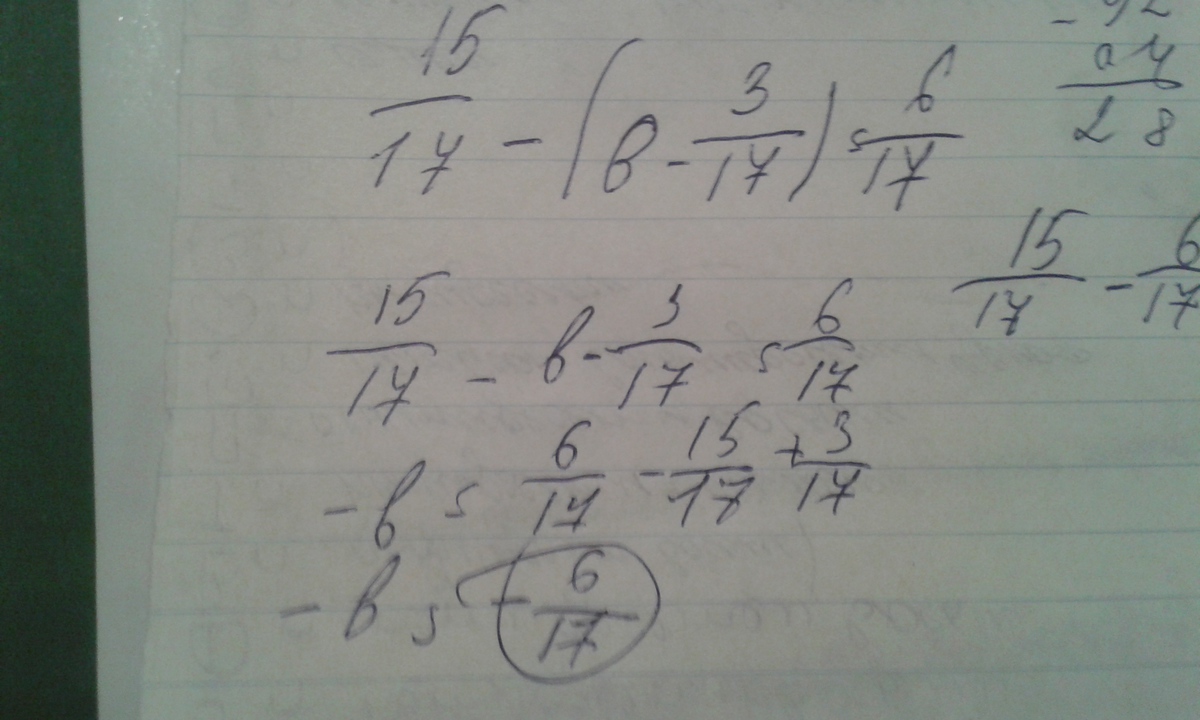 15/17 - (в - 3/17) = 6/17
15/17 - в - 3/17 = 6/17
-в = 6/17 - 15/17 + 3/17
-в = -6/17
28
15/17 - 6/17